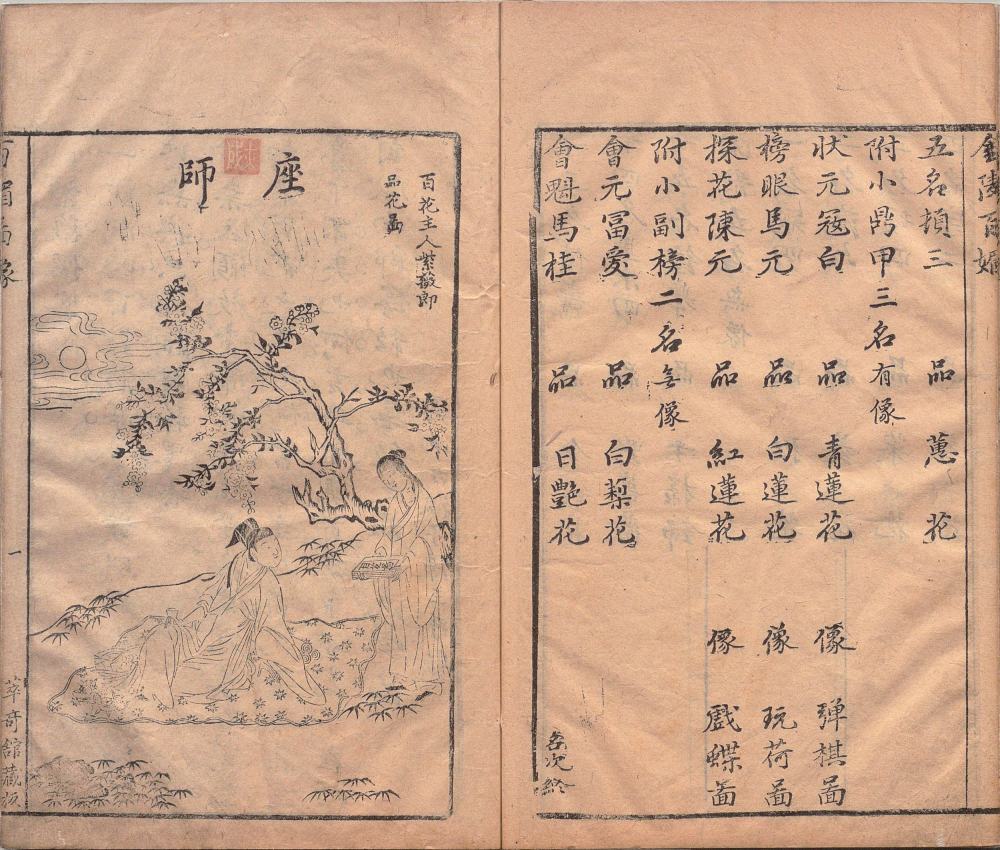 金陵百媚
五名頊三 品 蕙花
附小鼎甲三名有像
狀元寇白 品 青蓮花 像 彈棋啚
榜眼馬元 品 白蓮花 像 玩荷啚
探花陳元 品 紅蓮花 像 戲蝶啚
附小副榜二名无像
會元冨愛 品 白梨花
會魁馬桂 品 日艷花
名次終
座師
百花主人紫
郎
品花啚
百媚
像
一
萃奇舘藏板